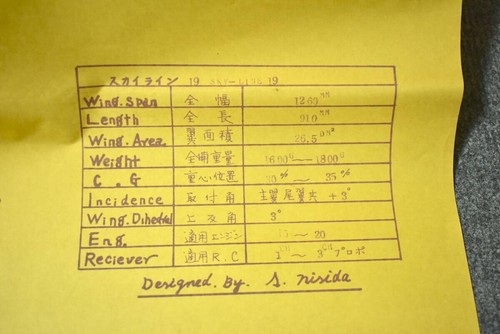 スカイライン 19 19
Wing.Span 全幅 1260 m/m
Length 全長 910 m/m
Wing.Area. 翼面積 26.5
Weight 全備重量 1600G〜1800G
C.G 重心位置 30%〜35%
Incidence 取付角 主翼尾翼共 +3°
Wing.Dihedral 上反角 3°
Eng. 適用エンジン 15〜20
Reciever 適用R.C 〜 3CH プロポ
Designed. By. S. nisida